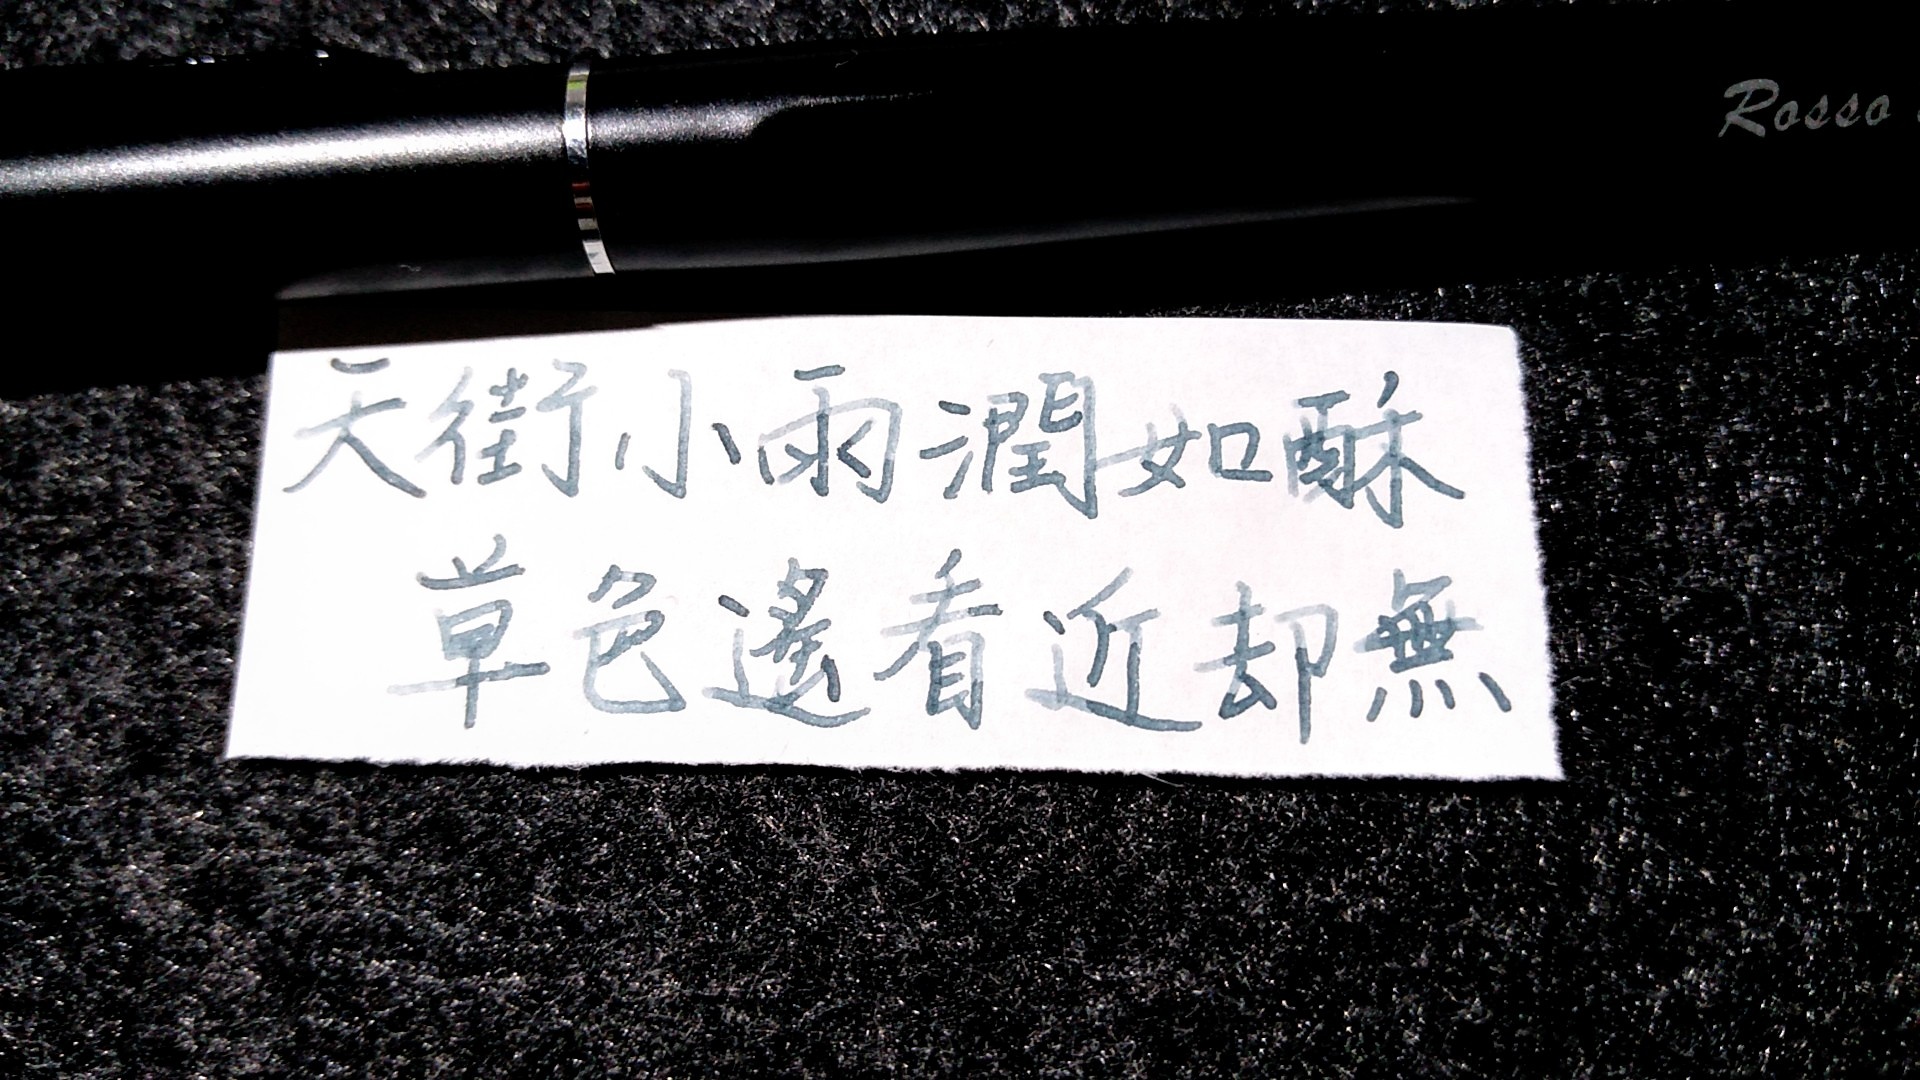 Rosso
天街小雨潤如酥
草色遙看近却無